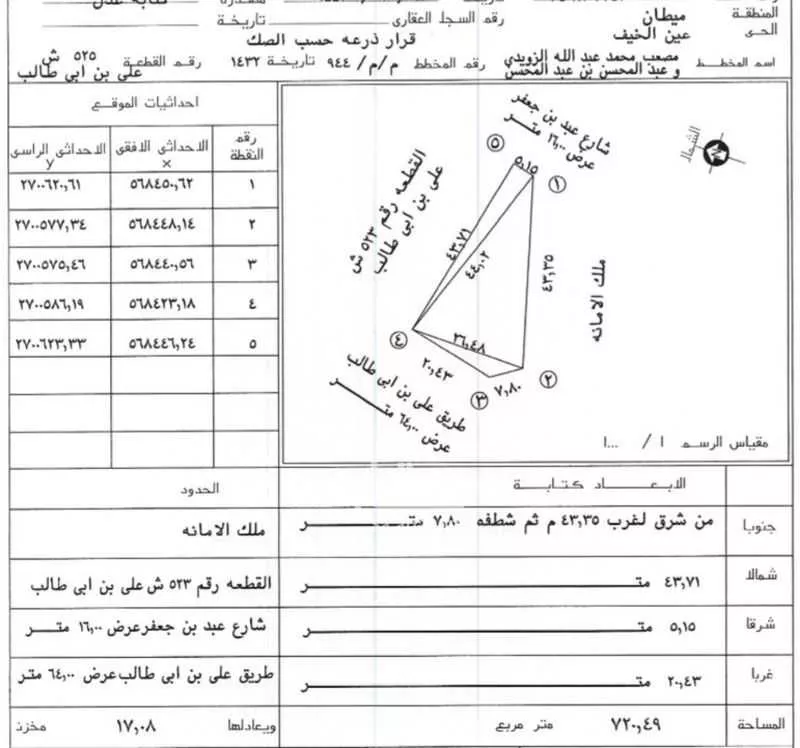 المنطقة ميطان رقم السجل العقارى تاريخة
الحى عين الخيف
قرار ذرعه حسب الصك
اسم المخطط مصعب محمد عبد الله الزويدي و عبد المحسن بن عبد المحسن رقم المخطط م/م/ ٩٤٤ تاريخة ١٤٣٢ رقم القطعة ٥٢٥ ش على بن ابى طالب
احداثيات الموقع
رقم النقطة الاحداثى الافقى x الاحداثى الراسى y
١ ٥٦٨٤٥٠,٦٢ ٢٧٠٠٦٢٠,٦١
٢ ٥٦٨٤٤٨,١٤ ٢٧٠٠٥٧٧,٣٤
٣ ٥٦٨٤٤٠,٥٦ ٢٧٠٠٥٧٥,٤٦
٤ ٥٦٨٤٢٣,١٨ ٢٧٠٠٥٨٦,١٩
٥ ٥٦٨٤٤٦,٢٤ ٢٧٠٠٦٢٣,٣٣
شارع عبد بن جعفر
عرض ١٦,٠٠ متر
الشمال
٥
٥,١٥
١
القطعه رقم ٥٢٣ ش
على بن ابى طالب
٤٣,٧١
٤٤,٠٢
٤٣,٣٥
ملك الامانه
٤
٢٦,٤٨
٢٠,٤٣
٧,٨٠
٢
٣
طريق على بن ابى طالب
عرض ٦٤,٠٠ متر
مقياس الرسم ١ / ١٠٠٠
الابعاد كتابة الحدود
جنوبا من شرق لغرب ٤٣,٣٥ م ثم شطفه ٧,٨٠ متر ملك الامانه
شمالا ٤٣,٧١ متر القطعه رقم ٥٢٣ ش على بن ابى طالب
شرقا ٥,١٥ متر شارع عبد بن جعفر عرض ١٦,٠٠ متر
غربا ٢٠,٤٣ متر طريق على بن ابى طالب عرض ٦٤,٠٠ متر
المساحة ٧٢٠,٤٩ متر مربع ويعادلها ١٧,٠٨ مخزن